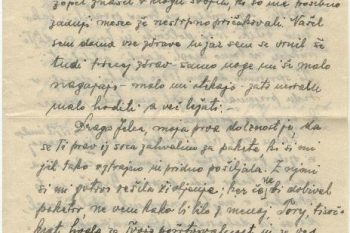 zadnji mesec že nestrpno pričakovali. Našel
sem doma vse zdrave in jaz sem se vrnil še
tudi precej zdrav - samo noge mi še malo
nagajajo - malo mi otekajo - zato moram
malo hoditi a več ležati.
Draga Jelca, moja prva dolžnost je, da
se ti prav iz srca zahvalim za pakete ki si mi
jih tako vztrajno in pridno pošiljala. Z njimi
si mi gotovo rešila življenje; ker če ne bi dobival
paketov ne vem kako bi bilo z menoj. Torej tisoč-
krat hvala za tvojo požrtvovalnost